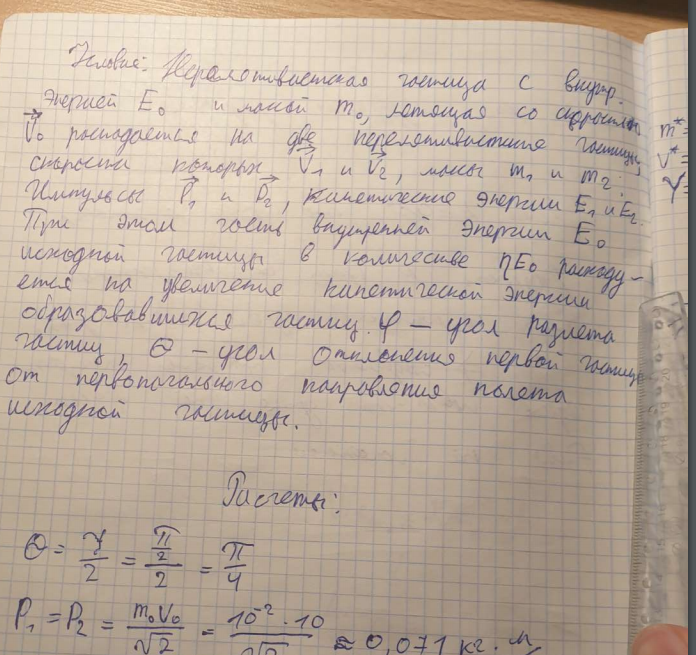 Условие: Нерелятивистская частица с внутр.
энергией E₀ и массой m₀, летящая со скоростью
v⃗₀ распадается на две нерелятивистские частицы,
скорости которых v⃗₁ и v⃗₂, массы m₁ и m₂.
Импульсы p⃗₁ и p⃗₂, кинетические энергии E₁ и E₂.
При этом часть внутренней энергии E₀
исходной частицы в количестве ηE₀ расходу-
ется на увеличение кинетической энергии
образовавшихся частиц. φ — угол разлета
частиц, Θ — угол отклонения первой частицы
от первоначального направления полета
исходной частицы.
m* =
v* =
Расчеты:
Θ = γ/2 = (π/2)/2 = π/4
P₁ = P₂ = m₀v₀/√2 = 10⁻² · 10/√2 ≈ 0,071 кг · м/